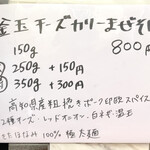 釜玉チーズカリーまぜそ
150g 800円
250g +150円
350g +300円
高知県産粗挽きポーク 印欧スパイス
2種チーズ・レッドオニオン・白ネギ・温玉
きたほなみ 100% 極太麺